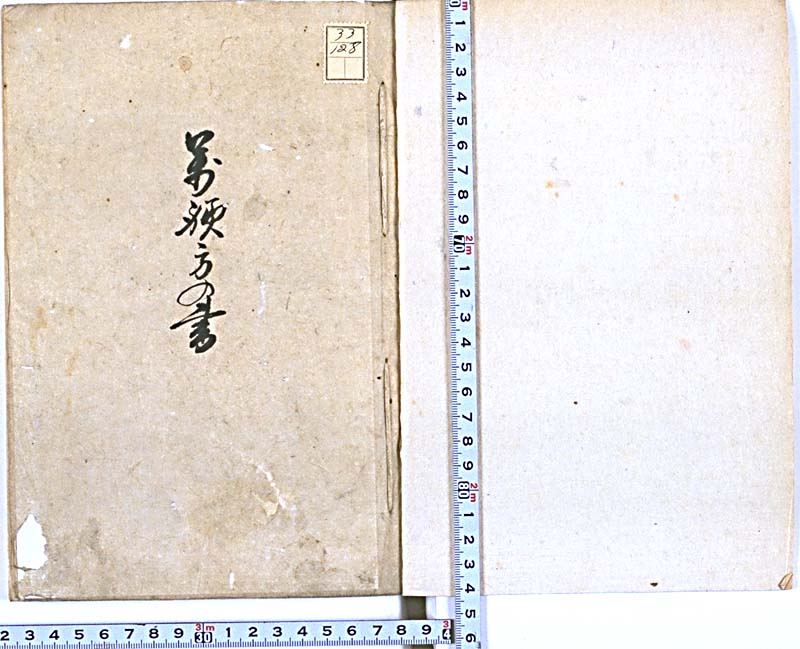 33
128
萬方の書
m 1 2 3 4 5 6 7 8 9 2m 70 1 2 3 4 5 6 7 8 9 2m 80 1 2 3 4 5 6
2 3 4 5 6 7 8 9 3m 30 1 2 3 4 5 6 7 8 9